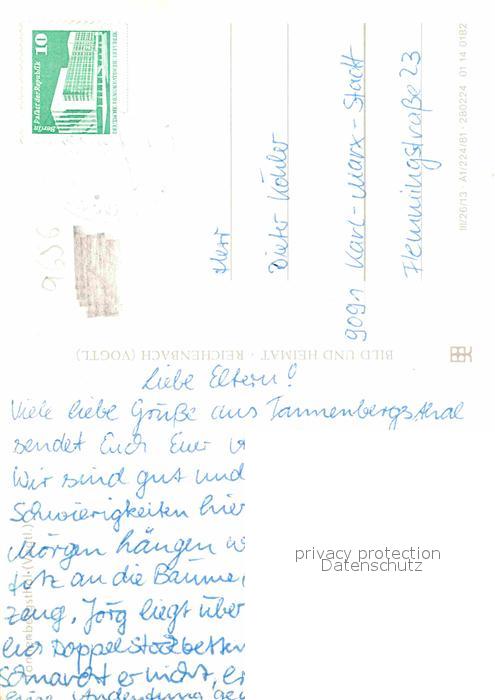 10
Berlin Palast der Republik
DEUTSCHE DEMOKRATISCHE REPUBLIK
Herr
Dieter Köhler
9091 Karl-Marx-Stadt
Flemmingstraße 23
III/26/13 A1/224/81 280224 01 14 0182
9656
BILD UND HEIMAT · REICHENBACH (VOGTL)
Liebe Eltern!
Viele liebe Grüße aus Tannenbergsthal
sendet Euch Euer
Wir sind gut und
Schwierigkeiten hier
Morgen hängen
an die Bäume
zeug, Jörg liegt über
Doppelstockbetten
Schnarcht er nicht,
eine
privacy protection
Datenschutz